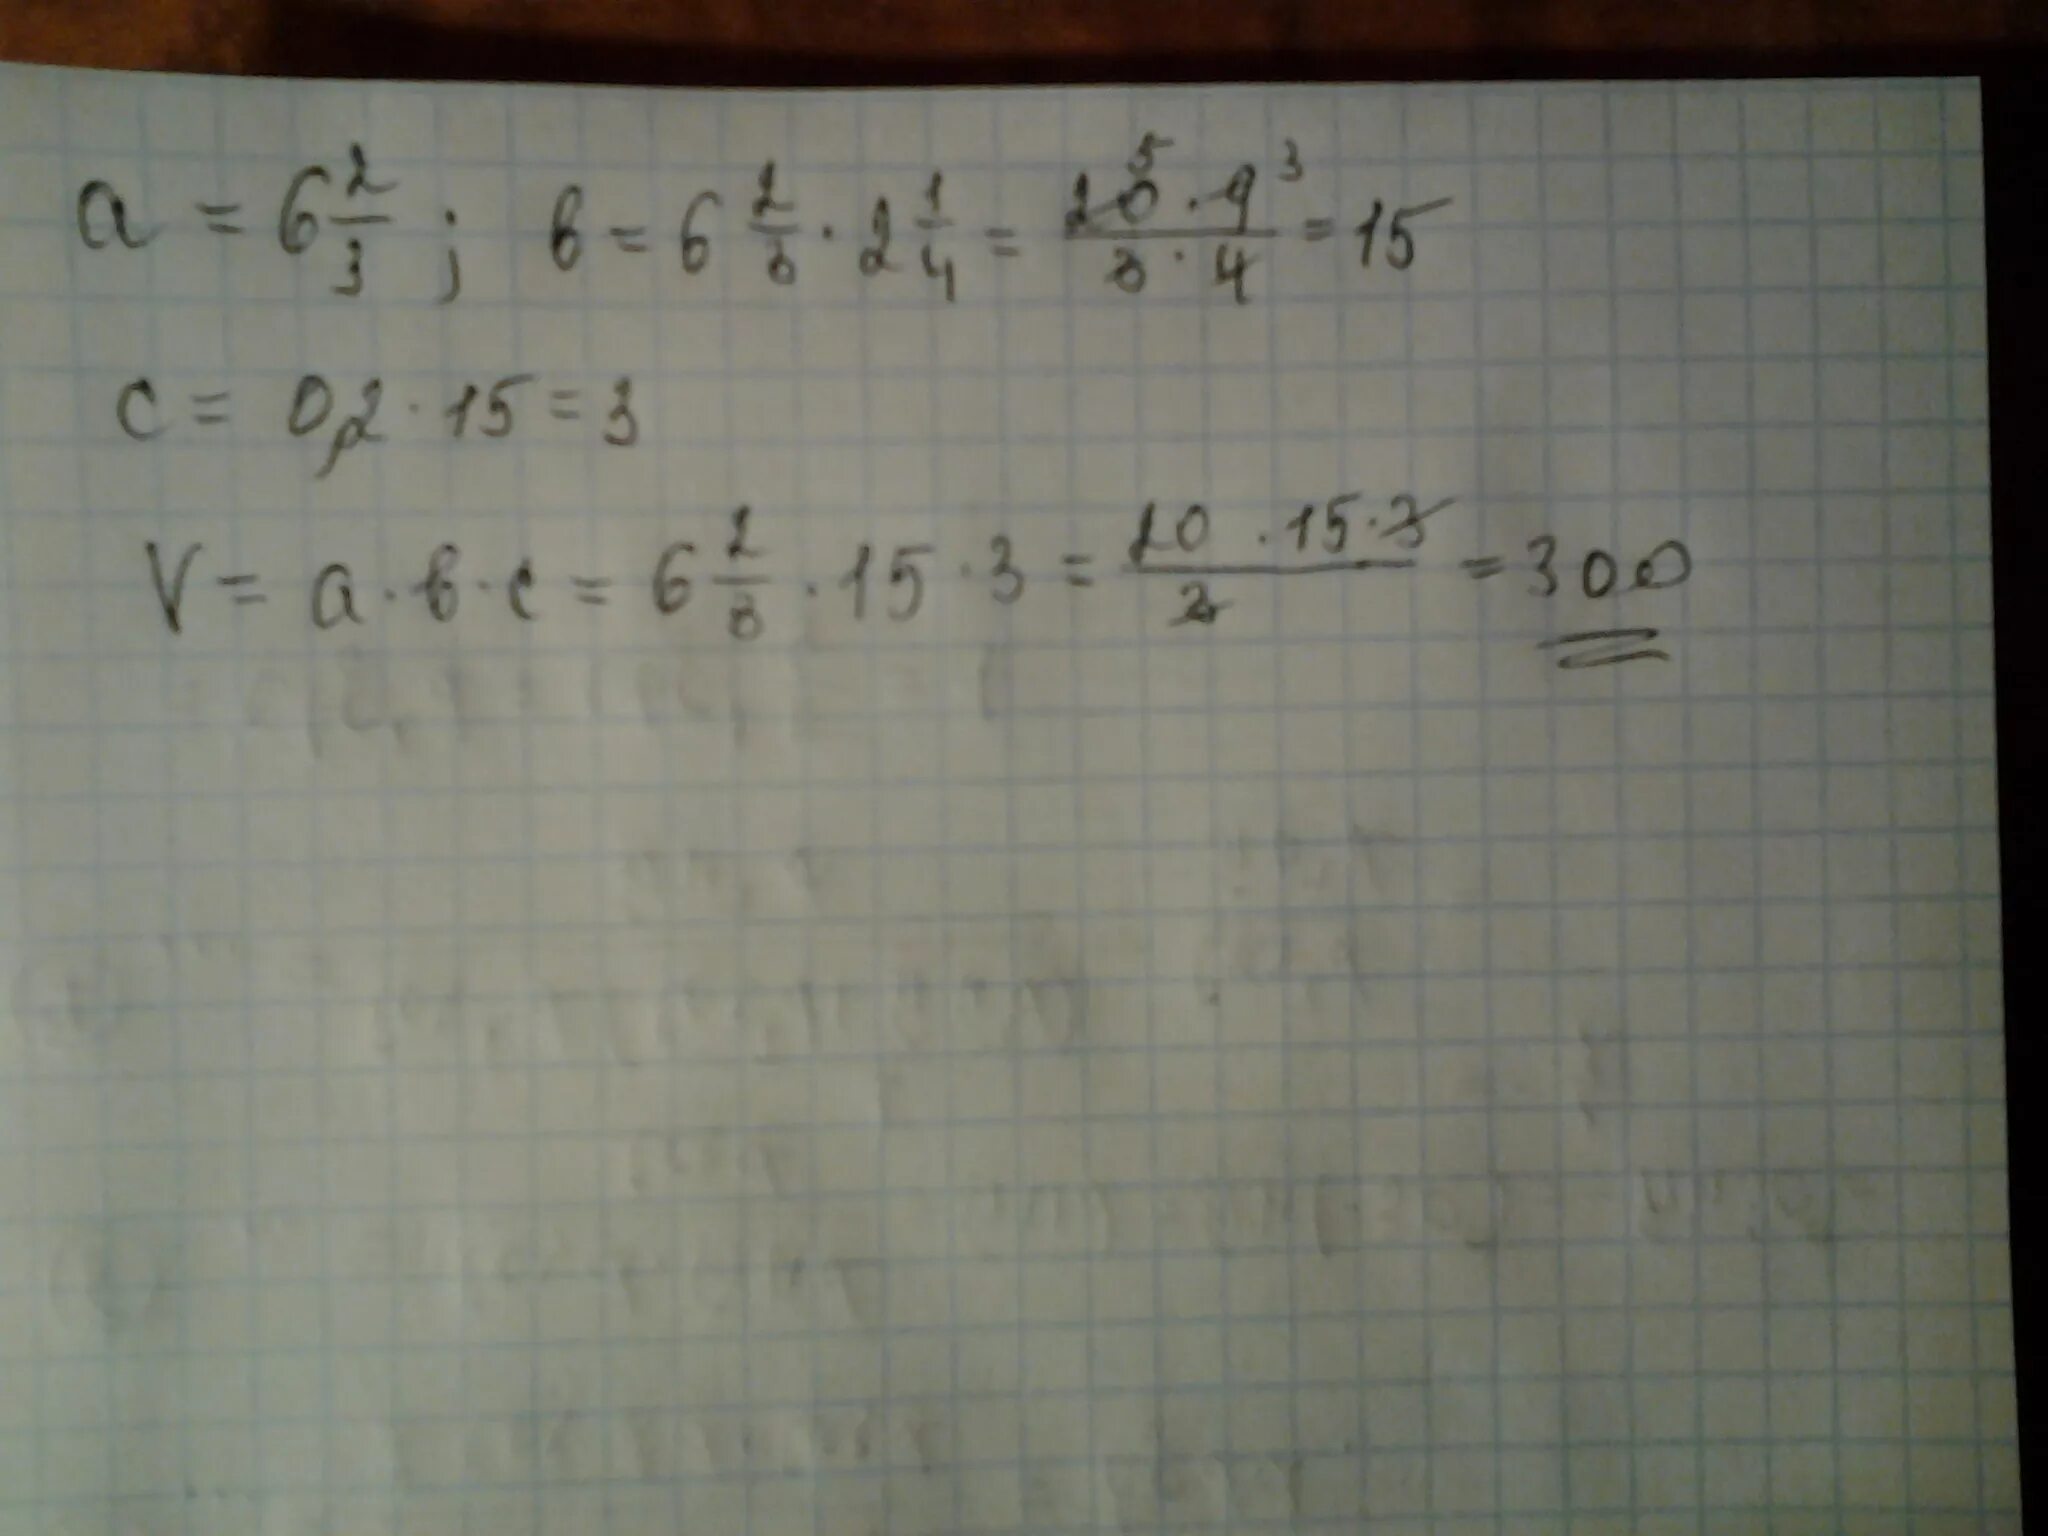 a = 6 2/3 ; в = 6 2/3 · 2 1/4 = 20 5 · 9 3 / 3 · 4 = 15
c = 0,2 · 15 = 3
V = a · в · c = 6 2/3 · 15 · 3 = 20 · 15 · 3 / 3 = 300